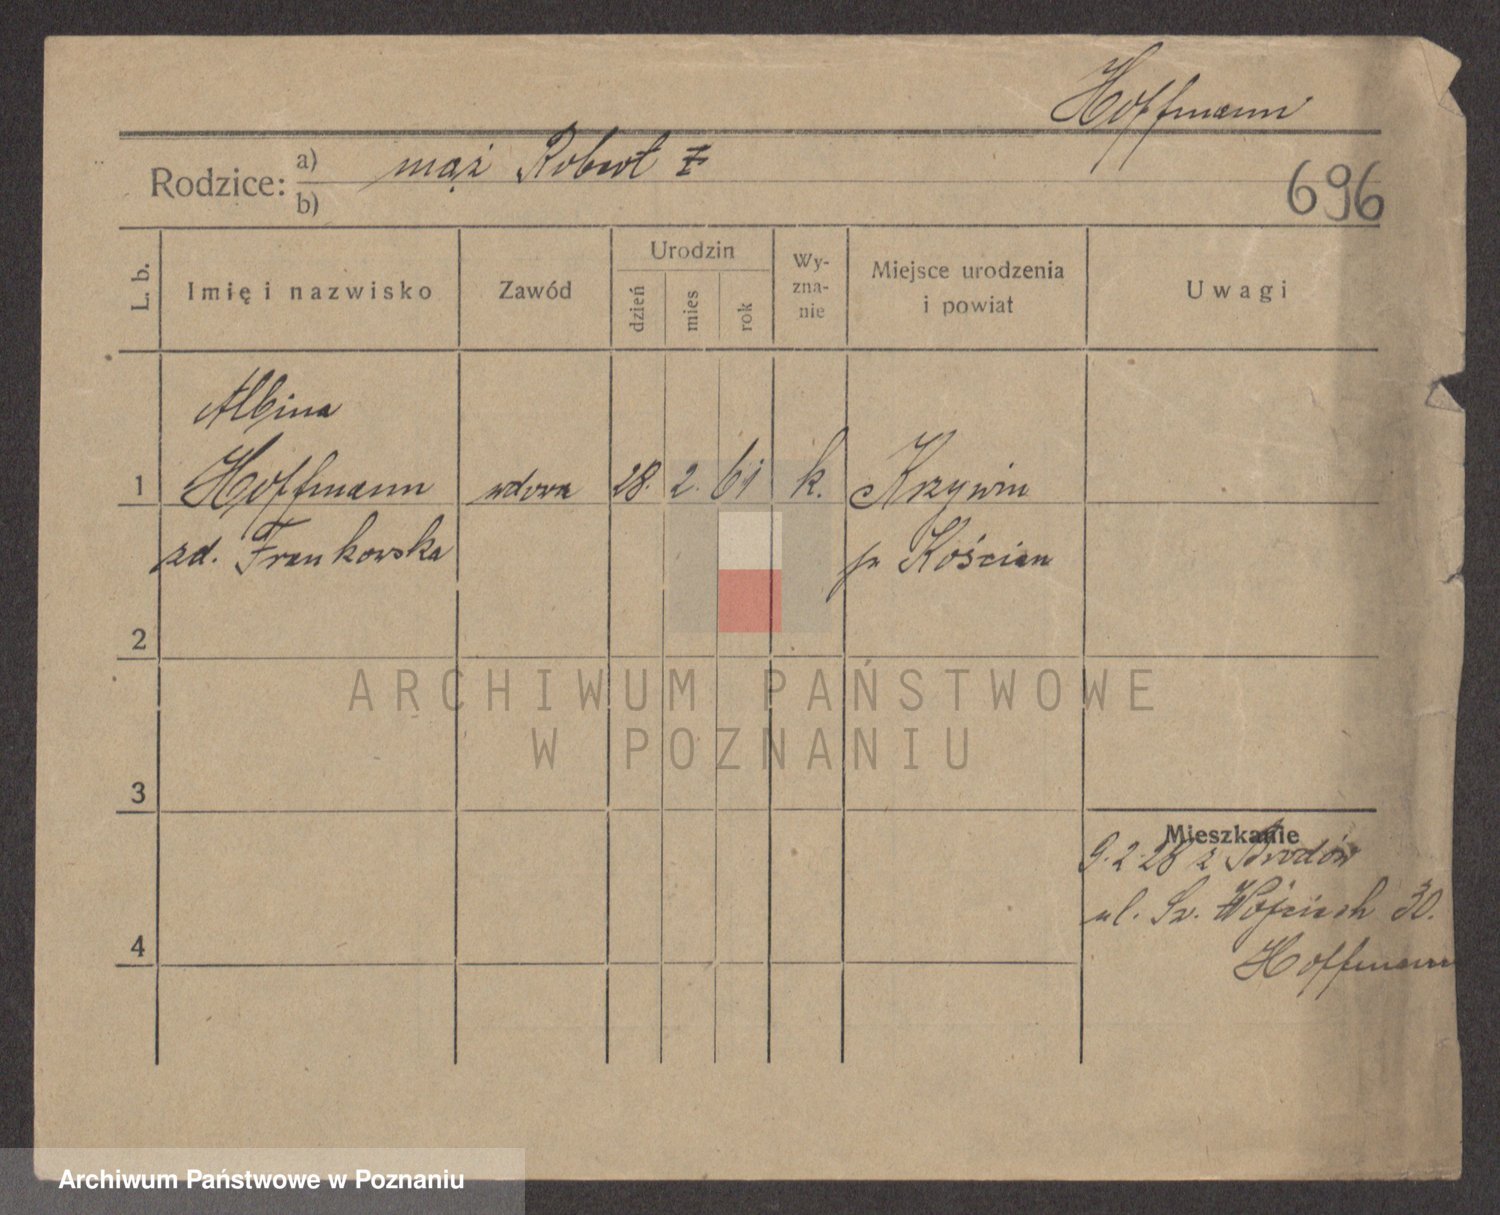 Hoffmann
Rodzice: a) mąż Robert ‡
b)
696
L. b.
Imię i nazwisko
Zawód
Urodzin
dzień
mies
rok
Wy-
zna-
nie
Miejsce urodzenia
i powiat
Uwagi
Albina
1 Hoffmann wdowa 28. 2. 61 k. Krzywin
zd. Frankowska p. Kościan
2
ARCHIWUM PAŃSTWOWE
W POZNANIU
3
Mieszkanie
9.2.28 z Brodów
ul. Św. Wojciech 30.
4
Hoffmann
Archiwum Państwowe w Poznaniu